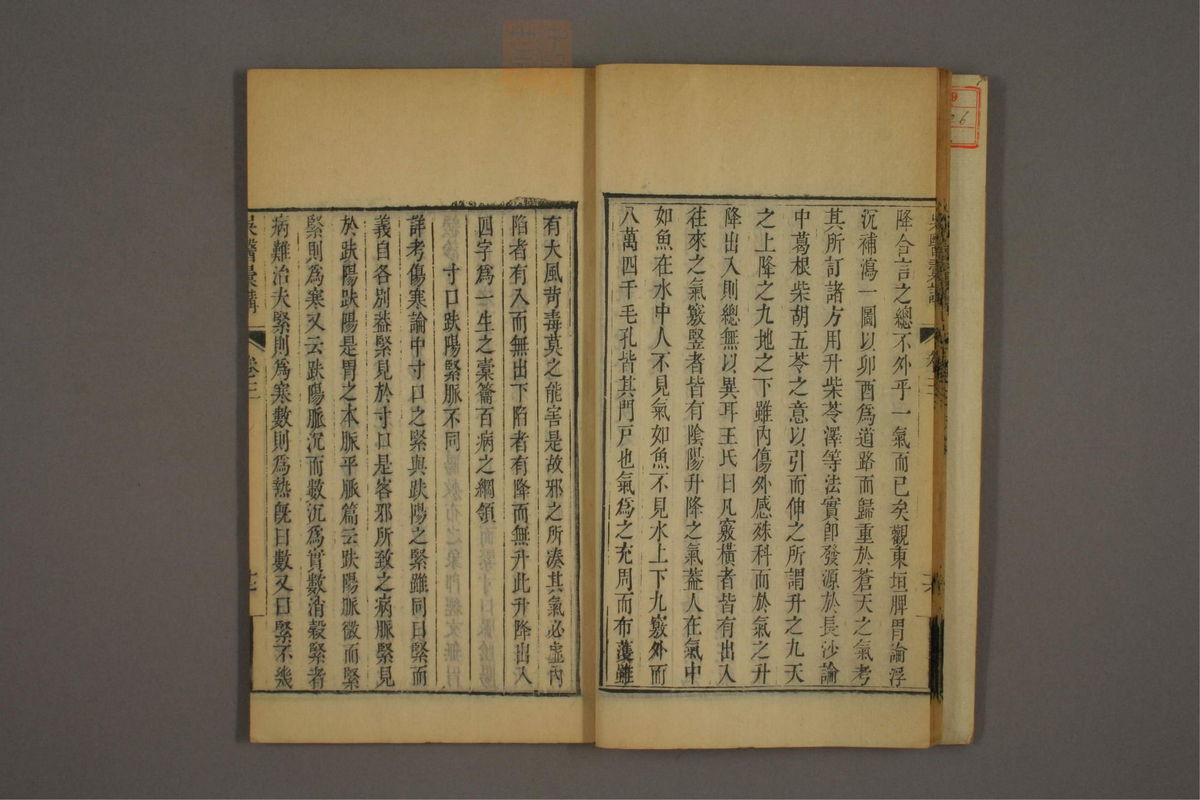 降合言之總不外乎一氣而已矣觀東垣脾胃論浮
沉補瀉一圖以卯酉爲道路而歸重於蒼天之氣考
其所訂諸方用升柴苓澤等法實卽發源於長沙論
中葛根柴胡五苓之意以引而伸之所謂升之九天
之上降之九地之下雖內傷外感殊科而於氣之升
降出入則總無以異耳王氏曰凡竅橫者皆有出入
往來之氣竅豎者皆有陰陽升降之氣葢人在氣中
如魚在水中人不見氣如魚不見水上下九竅外而
八萬四千毛孔皆其門戸也氣爲之充周而布濩雖
有大風苛毒莫之能害是故邪之所湊其氣必虛內
陷者有入而無出下陷者有降而無升此升降出入
四字爲一生之槖籥百病之綱領
寸口趺陽緊脈不同
詳考傷寒論中寸口之緊與趺陽之緊雖同曰緊而
義自各別葢緊見於寸口是客邪所致之病脈緊見
於趺陽趺陽是胃之本脈平脈篇云趺陽脈微而緊
緊則爲寒又云趺陽脈沉而數沉爲實數消穀緊者
病難治夫緊則爲寒數則爲熱旣曰數又曰緊不幾
吳醫彙講
卷三